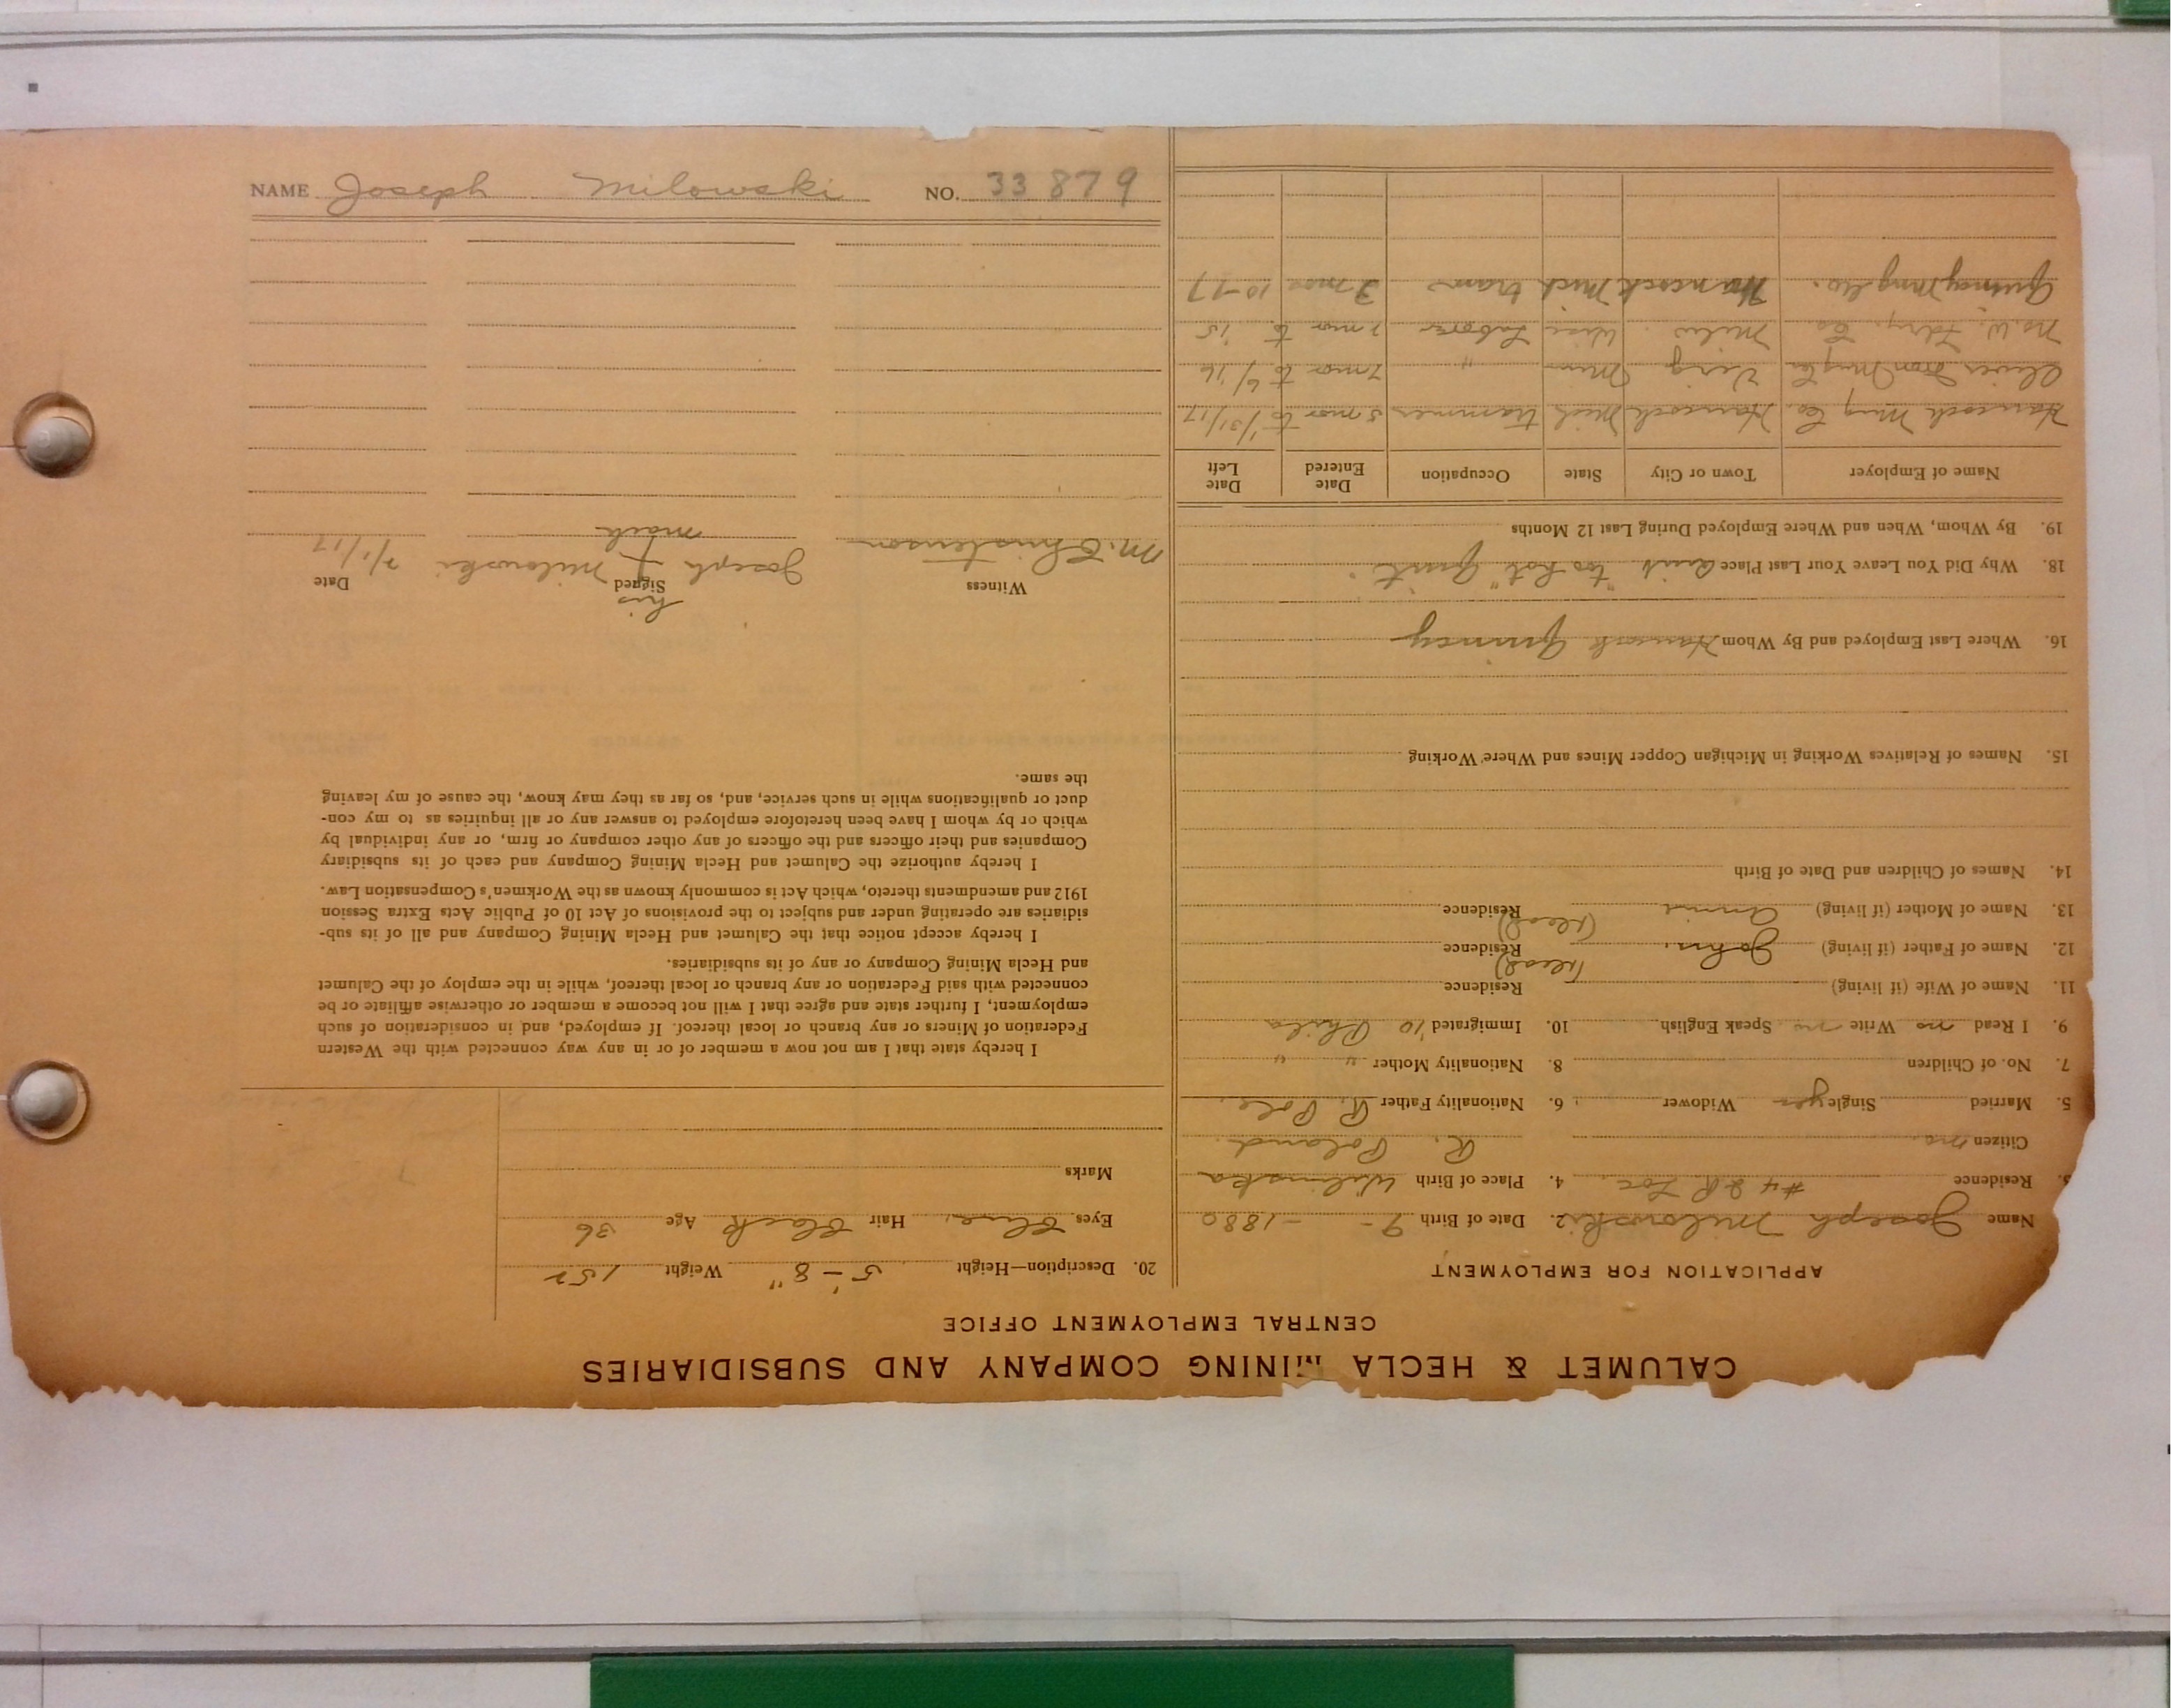 NAME Joseph Milowski NO. 33879
CALUMET & HECLA MINING COMPANY AND SUBSIDIARIES
CENTRAL EMPLOYMENT OFFICE
APPLICATION FOR EMPLOYMENT
Name Joseph Milowski 2. Date of Birth 9 - - 1880
3. Residence #4 & R Loc. 4. Place of Birth Wilinska
Citizen no. R. Poland.
5. Married Single yes Widower 6. Nationality Father R. Pole.
7. No. of Children 8. Nationality Mother " "
9. I Read no Write no Speak English 10. Immigrated '10 Phila
11. Name of Wife (if living) Residence
12. Name of Father (if living) John. (dead) Residence
13. Name of Mother (if living) Annie (dead) Residence
14. Names of Children and Date of Birth
15. Names of Relatives Working in Michigan Copper Mines and Where Working
16. Where Last Employed and By Whom Hancock Quincy
18. Why Did You Leave Your Last Place Quit "too hot" Quit.
19. By Whom, When and Where Employed During Last 12 Months
Name of Employer Town or City State Occupation Date Entered Date Left
Hancock Mng Co. Hancock Mich trammer 5 mos to 1/31/17
Oliver Iron Mng Co Virg Minn " 7 mos to 6/16
No. W. Fdry. Co Milw. Wisc Laborer 7 mos to '15
Quincy Mng Co. Hancock Mich tram 3 mos 10-17
20. Description—Height 5'-8" Weight 152
Eyes Blue. Hair Black Age 36
Marks
I hereby state that I am not now a member of or in any way connected with the Western
Federation of Miners or any branch or local thereof. If employed, and in consideration of such
employment, I further state and agree that I will not become a member or otherwise affiliate or be
connected with said Federation or any branch or local thereof, while in the employ of the Calumet
and Hecla Mining Company or any of its subsidiaries.
I hereby accept notice that the Calumet and Hecla Mining Company and all of its sub-
sidiaries are operating under and subject to the provisions of Act 10 of Public Acts Extra Session
1912 and amendments thereto, which Act is commonly known as the Workmen's Compensation Law.
I hereby authorize the Calumet and Hecla Mining Company and each of its subsidiary
Companies and their officers and the officers of any other company or firm, or any individual by
which or by whom I have been heretofore employed to answer any or all inquiries as to my con-
duct or qualifications while in such service, and, so far as they may know, the cause of my leaving
the same.
his
Witness Signed Date
M. Christenson Joseph + Milowski 7/1/17
mark